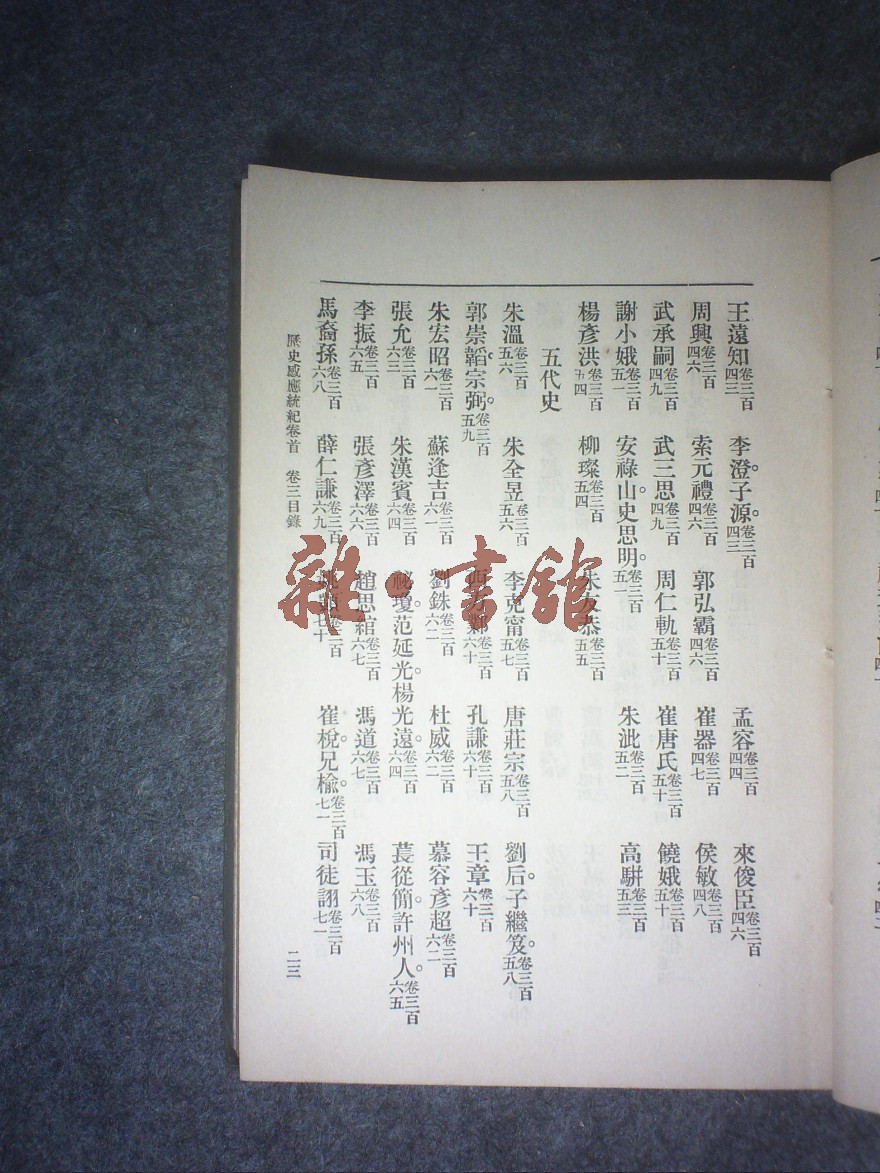 王遠知卷三百四三 李澄。子源。卷三百四三 孟容卷三百四四 來俊臣卷三百四六
周興卷三百四六 索元禮卷三百四六 郭弘霸卷三百四六 崔器卷三百四七 侯敏卷三百四八
武承嗣卷三百四九 武三思卷三百四九 周仁軌卷三百五十 崔唐氏卷三百五十 饒娥卷三百五十
謝小娥卷三百五一 安祿山。史思明。卷三百五一 朱泚卷三百五二 高駢卷三百五三
楊彥洪卷三百五四 柳璨卷三百五四 朱友恭卷三百五五
五代史
朱溫卷三百五六 朱全昱卷三百五六 李克甯卷三百五七 唐莊宗卷三百五八 劉后。子繼岌。卷三百五八
郭崇韜。宗弼。卷三百五九 西方鄴卷三百六十 孔謙卷三百六十 王章卷三百六十
朱宏昭卷三百六一 蘇逢吉卷三百六一 劉銖卷三百六二 杜威卷三百六二 慕容彥超卷三百六二
張允卷三百六三 朱漢賓卷三百六四 祕瓊。范延光。楊光遠。卷三百六四 萇從簡。許州人。卷三百六五
李振卷三百六五 張彥澤卷三百六六 趙思綰卷三百六七 馮道卷三百六七 馮玉卷三百六八
馬裔孫卷三百六八 薛仁謙卷三百六九 卷三百七十 崔梲。兄榆。卷三百七一 司徒詡卷三百七一
歷史感應統紀卷首 卷三目錄 二三
雜·書館